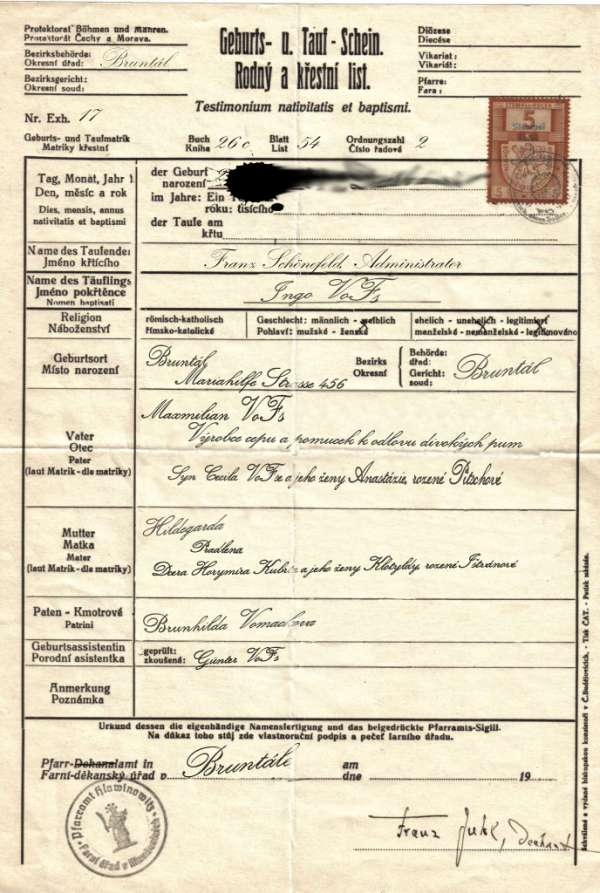 Protektorat Böhmen und Mähren.
Protektorát Čechy a Morava.
Bezirksbehörde:
Okresní úřad: Bruntál
Bezirksgericht:
Okresní soud:
Geburts- u. Tauf-Schein.
Rodný a křestní list.
Testimonium nativitatis et baptismi.
Diözese
Diecése
Vikariat:
Vikariát:
Pfarre:
Fara:
Nr. Exh. 17
Geburts- und Taufmatrik
Matriky křestní
Buch
Kniha 26c
Blatt
List 54
Ordnungszahl
Číslo řadové 2
5
Tag, Monat, Jahr
Den, měsíc a rok
Dies, mensis, annus
nativitatis et baptismi
der Geburt
narození
im Jahre: Ein
roku: tisícího
der Taufe am
křtu
Name des Taufenden
Jméno křtícího
Franz Schönefeld, Administrater
Name des Täuflings
Jméno pokřtěnce
Nomen baptisati
Ingo VoFs
Religion
Náboženství
römisch-katholisch
římsko-katolické
Geschlecht: männlich - weiblich
Pohlaví: mužské - ženské
ehelich - unehelich - legitimiert
manželské - nemanželské - legitimováno
Geburtsort
Místo narození
Bruntál
Mariahilfe Strasse 456
Bezirks
Okresní
Behörde:
úřad:
Gericht:
soud:
Bruntál
Vater
Otec
Pater
(laut Matrik - dle matriky)
Maxmilian VoFs
Výrobce cepu a pomucek k odlovu divokých pum
Syn Cecila VoFse a jeho ženy Anastázie, rozené Pitschové
Mutter
Matka
Mater
(laut Matrik - dle matriky)
Hildegarda
Pradlena
Dcera Horymíra a jeho ženy Klotyldy, rozené
Paten - Kmotrové
Patrini
Brunhilda
Geburtsassistentin
Porodní asistentka
geprüft:
zkoušené: Günter VoFs
Anmerkung
Poznámka
Urkund dessen die eigenhändige Namensfertigung und das beigedrückte Pfarramts-Sigill.
Na důkaz toho stůj zde vlastnoruční podpis a pečeť farního úřadu.
Pfarr-Dekanalamt in
Farní-děkanský úřad v Bruntále
am
dne
19
Franz
Schválené a vydané biskupskou konsistoří v Č. Budějovicích. - Tisk ČAT. - Patisk zakázán.